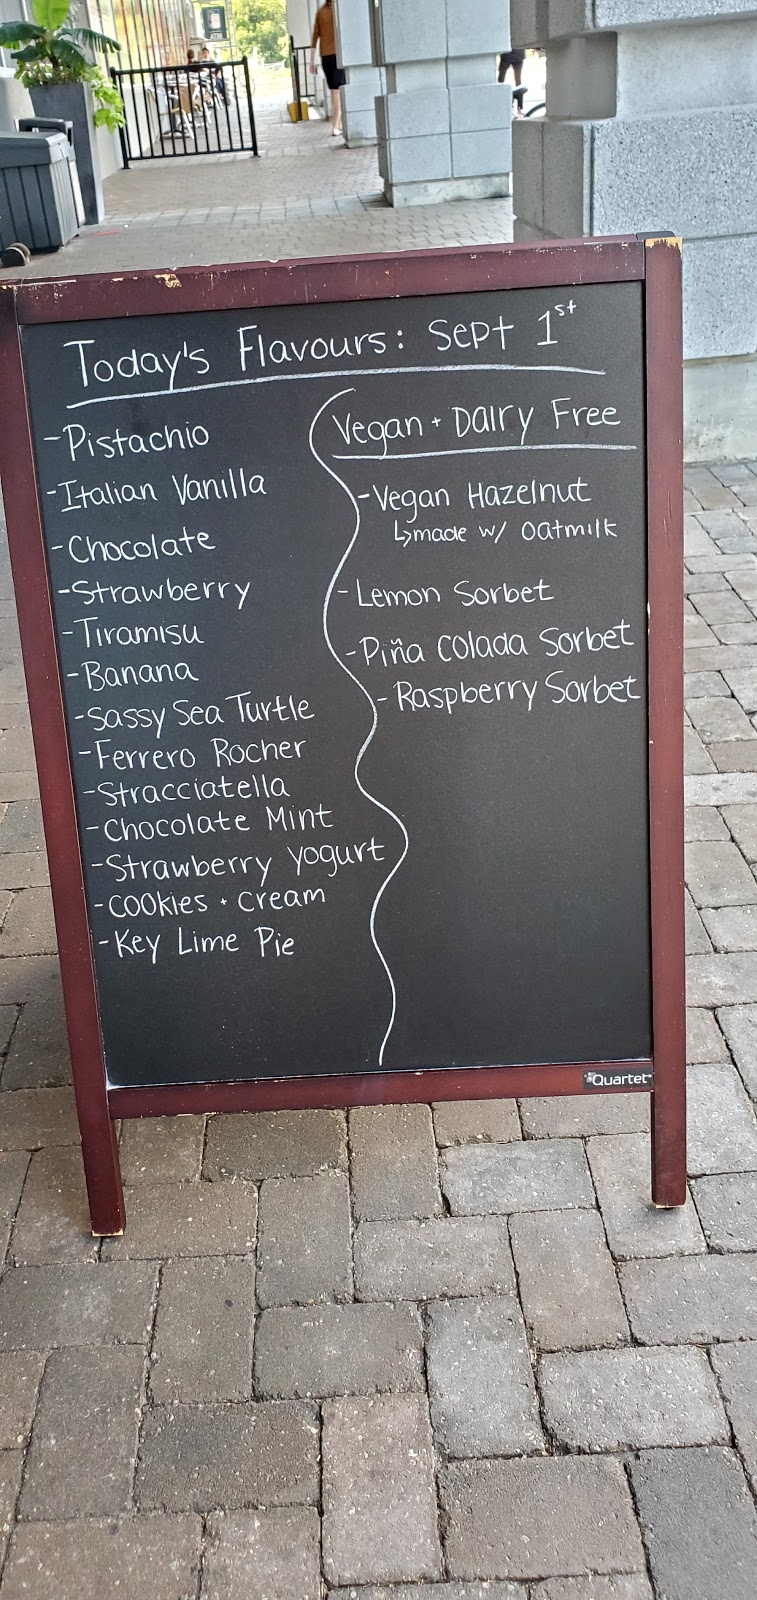 Today's Flavours: Sept 1st
-Pistachio
-Italian Vanilla
-Chocolate
-Strawberry
-Tiramisu
-Banana
-Sassy Sea Turtle
-Ferrero Rocher
-Stracciatella
-Chocolate Mint
-Strawberry Yogurt
-Cookies + Cream
-Key Lime Pie
Vegan + Dairy Free
-Vegan Hazelnut
↳made w/ oatmilk
-Lemon Sorbet
-Piña Colada Sorbet
-Raspberry Sorbet
Quartet
ATM